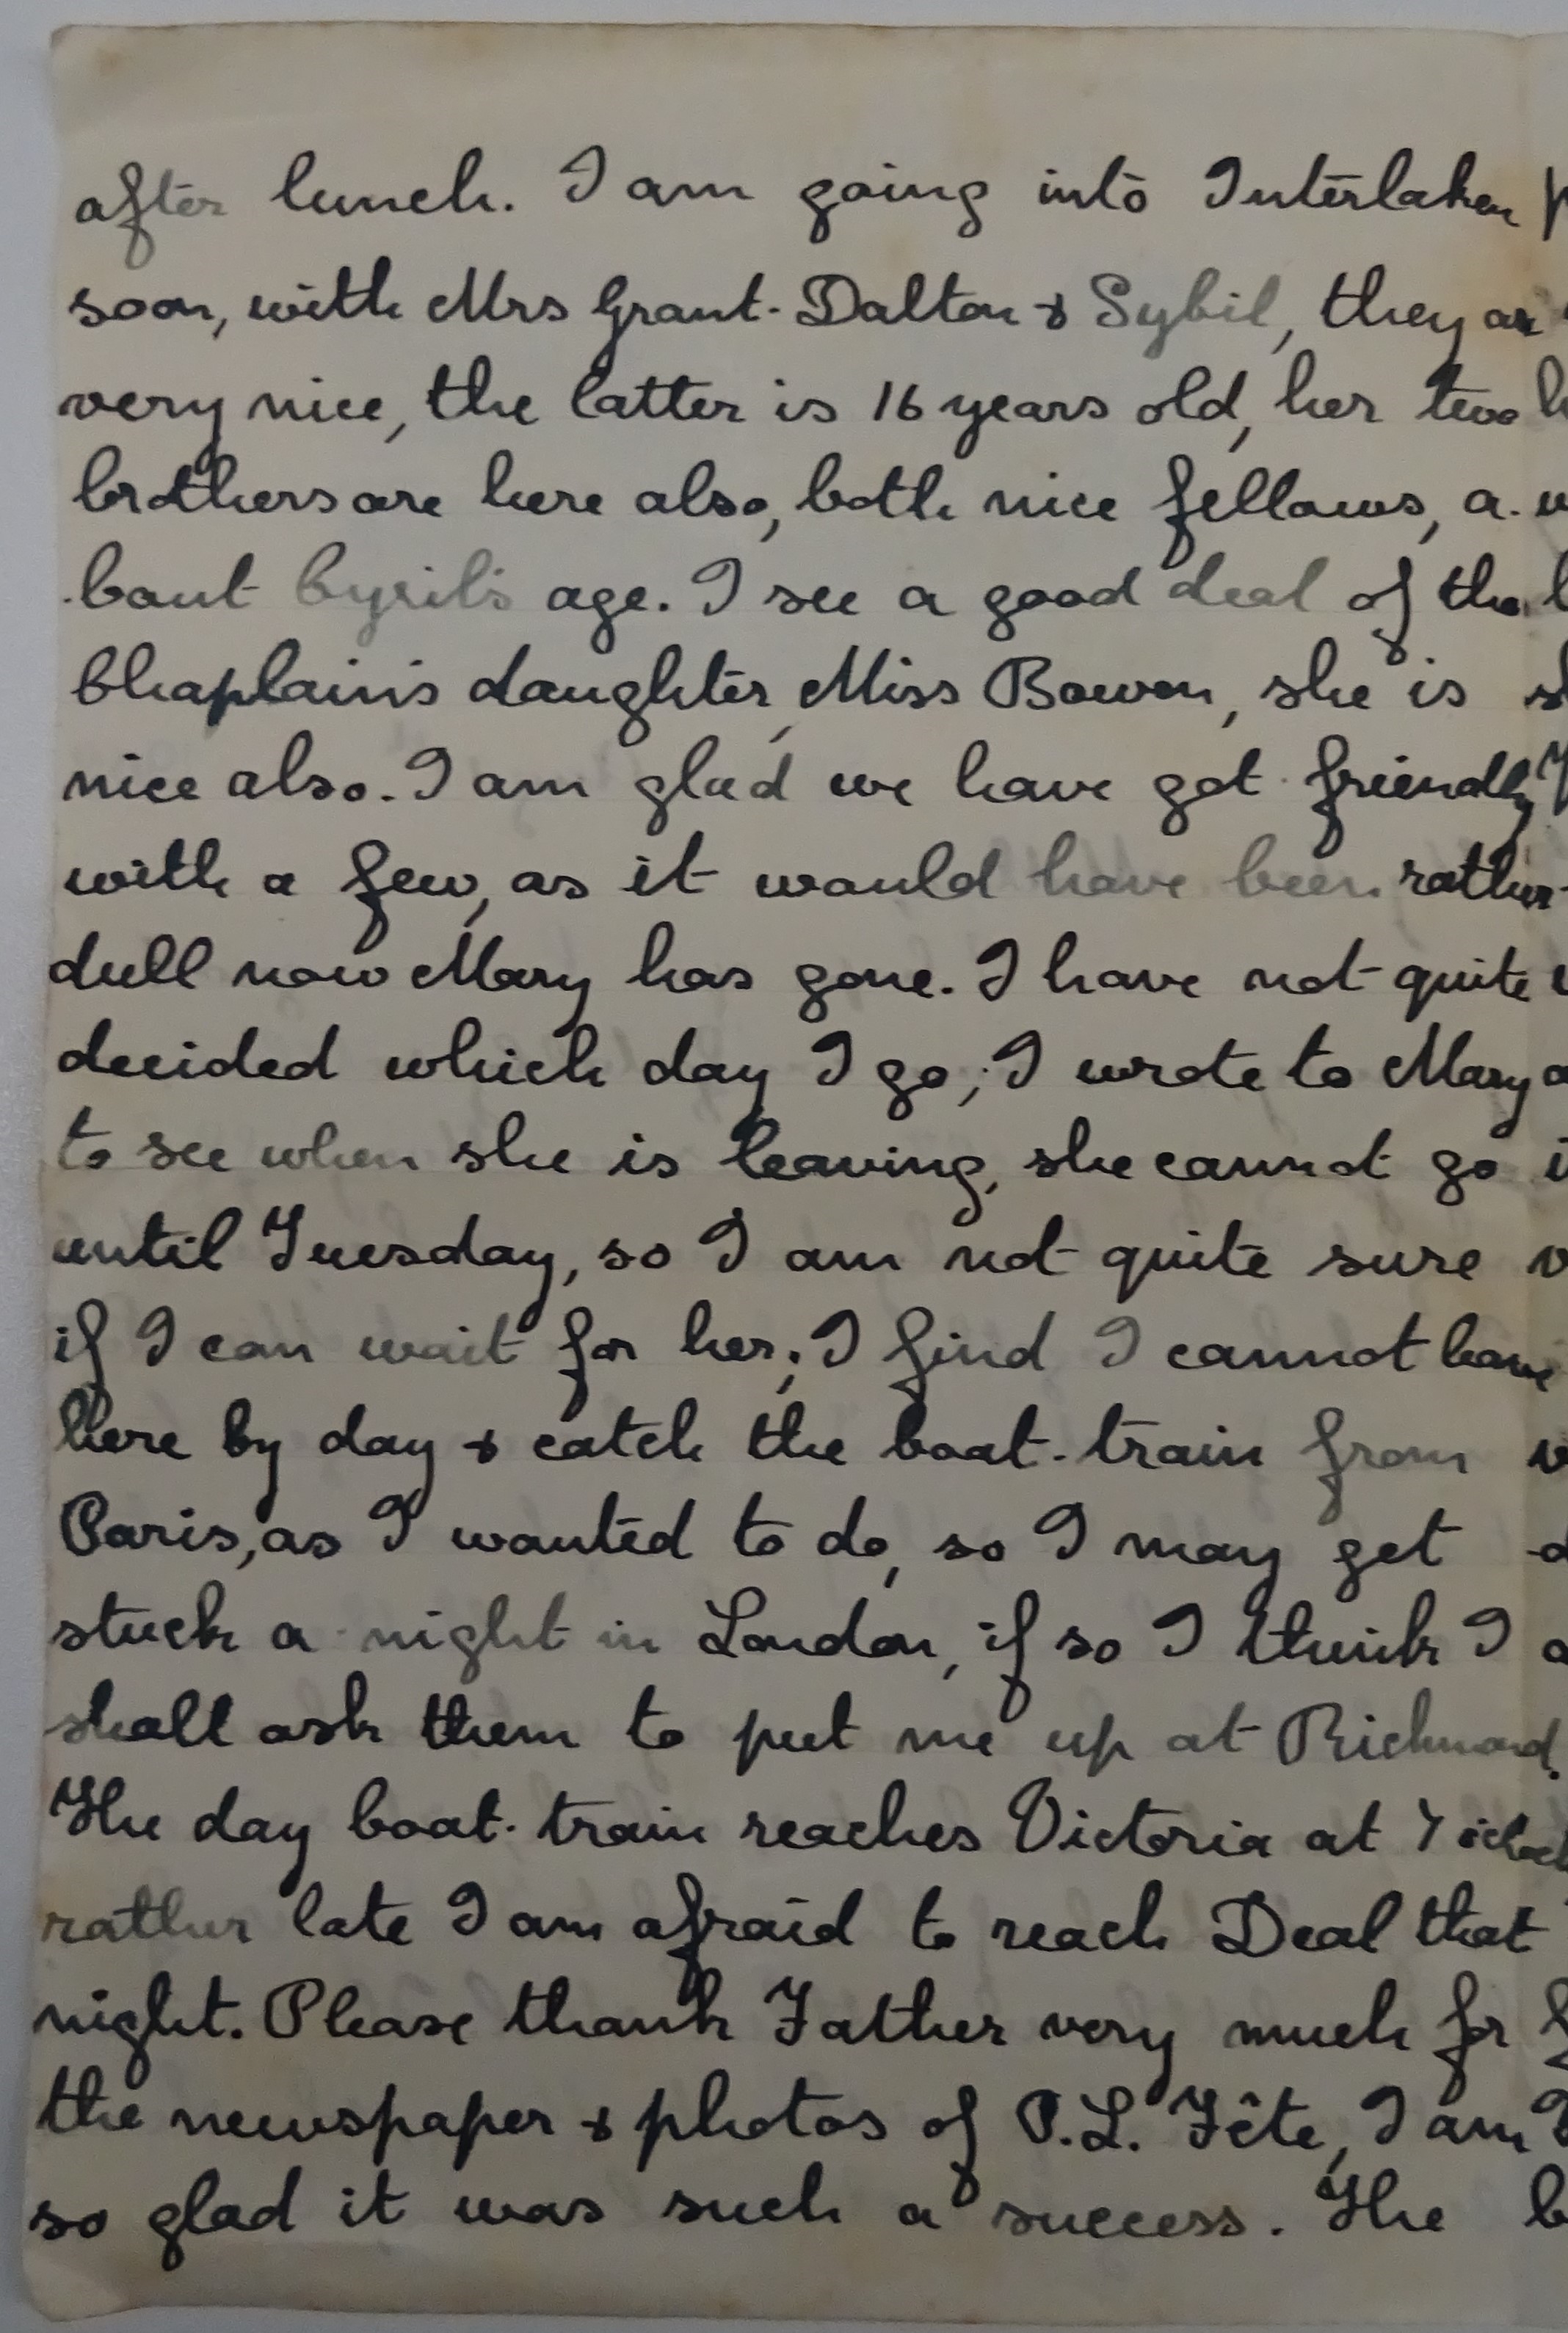 after lunch. I am going into Interlaken
soon, with Mrs Grant-Dalton & Sybil, they are
very nice, the latter is 16 years old, her two
brothers are here also, both nice fellows, a-
bout Cyril's age. I see a good deal of the
Chaplain's daughter, Miss Bowen, she is
nice also. I am glad we have got friendly
with a few, as it would have been rather
dull now Mary has gone. I have not quite
decided which day I go; I wrote to Mary
to see when she is leaving, she cannot go
until Tuesday, so I am not quite sure
if I can wait for her; I find I cannot leave
here by day & catch the boat-train from
Paris, as I wanted to do, so I may get
stuck a night in London, if so I think I
shall ask them to put me up at Richmond.
The day boat-train reaches Victoria at 7 o'clock
rather late I am afraid to reach Deal that
night. Please thank Father very much for
the newspaper & photos of P.L. Fête, I am
so glad it was such a success. The